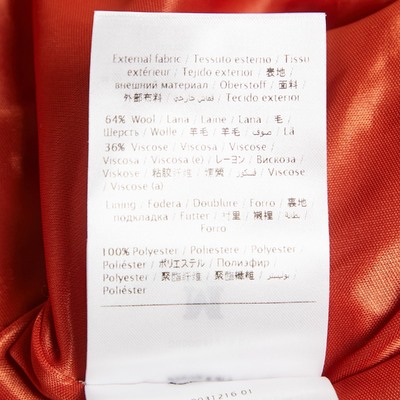 External fabric / Tessuto esterno / Tissu
extérieur / Tejido exterior / 表地 /
внешний материал / Oberstoff / 面料 /
外部布料 / قماش خارجي / Tecido exterior
64% Wool / Lana / Laine / Lana / 毛 /
Шерсть / Wolle / 羊毛 / 羊毛 / صوف / Lã
36% Viscose / Viscosa / Viscose /
Viscosa / Viscosa (e) / レーヨン / Вискоза /
Viskose / 粘胶纤维 / 嫘縈 / فسكوز /
Viscose / Viscose (a)
Lining / Fodera / Doublure / Forro / 裏地
подкладка / Futter / 衬里 / 襯裡 / بطانة /
Forro
100% Polyester / Poliestere / Polyester /
Poliéster / ポリエステル / Полиэфир /
Polyester / 聚酯纤维 / 聚酯纖維 / بوليستر /
Poliéster